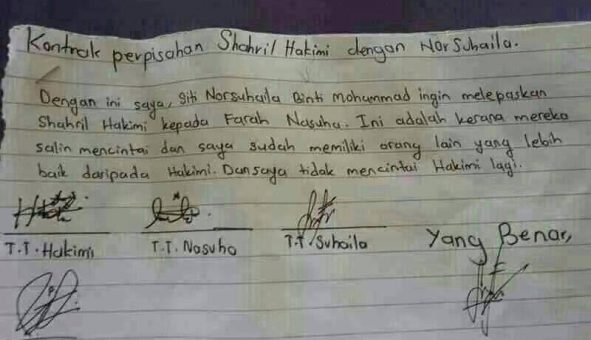 Kontrak perpisahan Shahril Hakimi dengan Norsuhaila.
Dengan ini saya, Siti Norsuhaila Binti Mohammad ingin melepaskan
Shahril Hakimi kepada Farah Nasuha. Ini adalah kerana mereka
salin mencintai dan saya sudah memiliki orang lain yang lebih
baik daripada Hakimi. Dan saya tidak mencintai Hakimi lagi.
T.T. Hakimi T.T. Nasuha T.T. Suhaila Yang Benar,